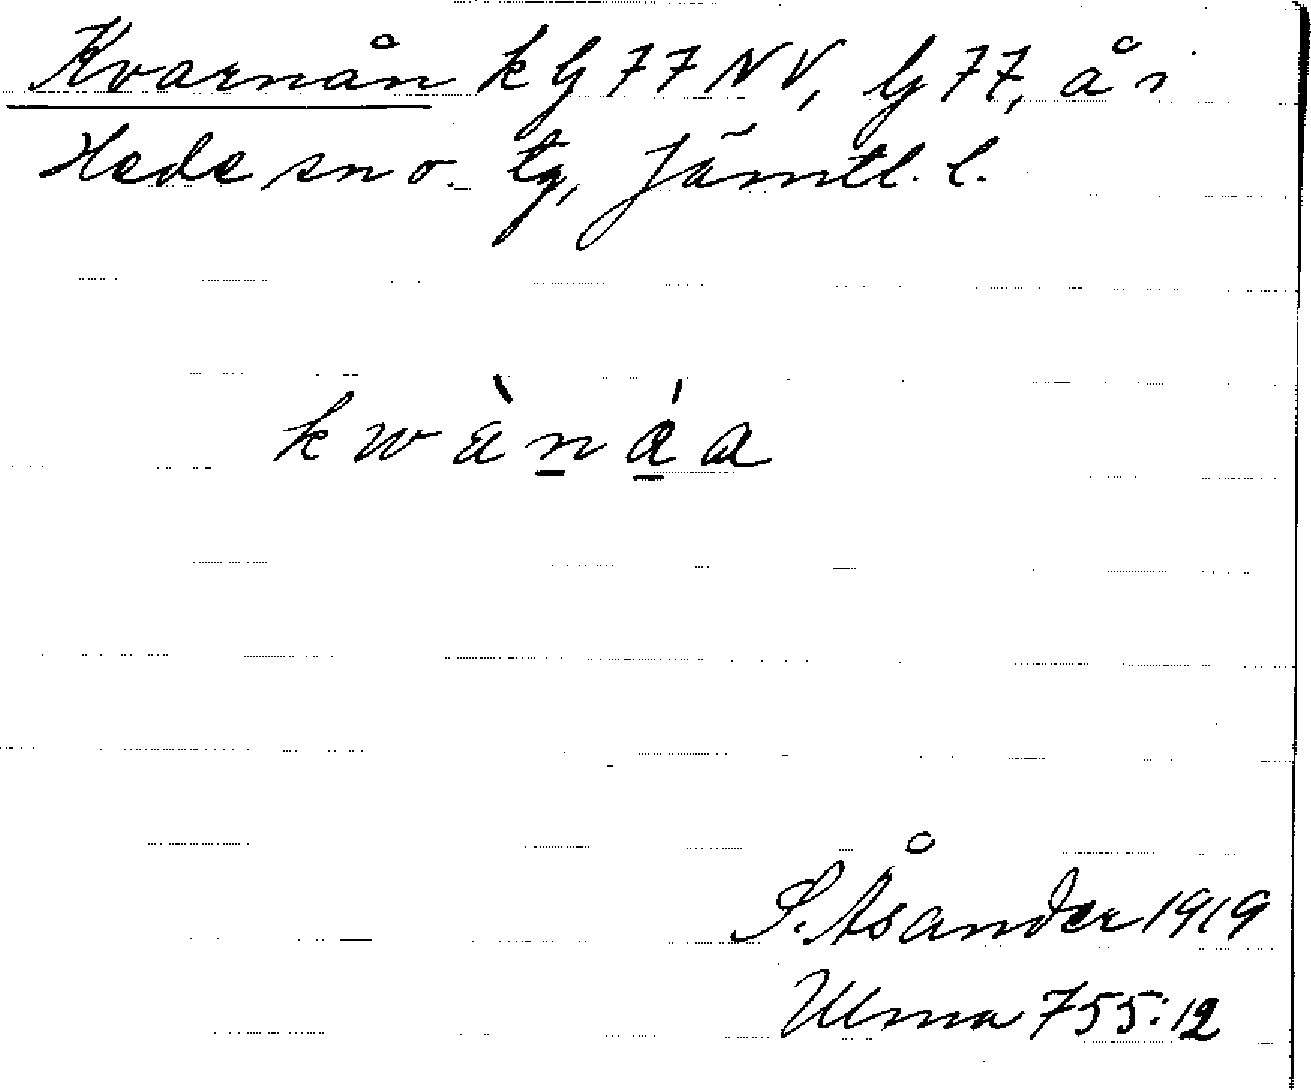 Kvarnån k G 77 NV, G 77, å i
Hede sn o. tg, Jämtl. l.
k w à n á a
S. Åsander 1919
Ulma 755:12